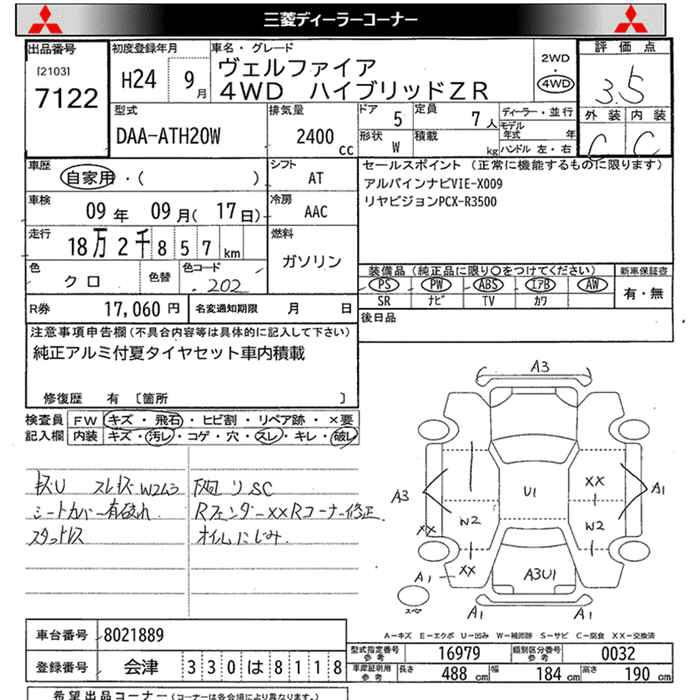 三菱ディーラーコーナー
出品番号
[2103]
7122
初度登録年月
H24 9月
車名・グレード
ヴェルファイア
4WD ハイブリッドZR
2WD
4WD
評価点
3.5
外装 内装
C C
型式
DAA-ATH20W
排気量
2400 cc
ドア 5
定員 7人
形状 W
積載 kg
ディーラー・並行
モデル年式 年
ハンドル 左・右
車歴
自家用・( )
シフト
AT
車検
09年 09月(17日)
冷房
AAC
走行
18万2千857km
燃料
ガソリン
色
クロ
色替
色コード
202
R券 17,060円
名変通知期限 月 日
セールスポイント (正常に機能するものに限ります)
アルパインナビVIE-X009
リヤビジョンPCX-R3500
装備品(純正品に限り○をつけてください)
PS PW ABS エアB AW
SR ナビ TV カワ
新車保証書
有・無
後日品
注意事項申告欄(不具合内容等は具体的に記入して下さい)
純正アルミ付夏タイヤセット車内積載
修復歴 有 [箇所 ]
検査員記入欄
FW キズ・飛石・ヒビ割・リペア跡・×要
内装 キズ・汚レ・コゲ・穴・スレ・キレ・破レ
シートカバー有破れ
スタットレス
下回リSC
Rフェンダー××Rコーナー修正
オイルにじみ
A3
U1
XX
A3
A1
W2
W2
XX
A1
XX
A3U1
スペア
A1
A1
A-キズ E-エクボ U-凹み W-補修跡 S-サビ C-腐食 XX-交換済
車台番号 8021889
登録番号 会津 330は8118
型式指定番号参考 16979
類別区分番号参考 0032
車庫証明用参考 長さ 488cm 幅 184cm 高さ 190cm
希望出品コーナー(コーナーは各会場により異なります。)